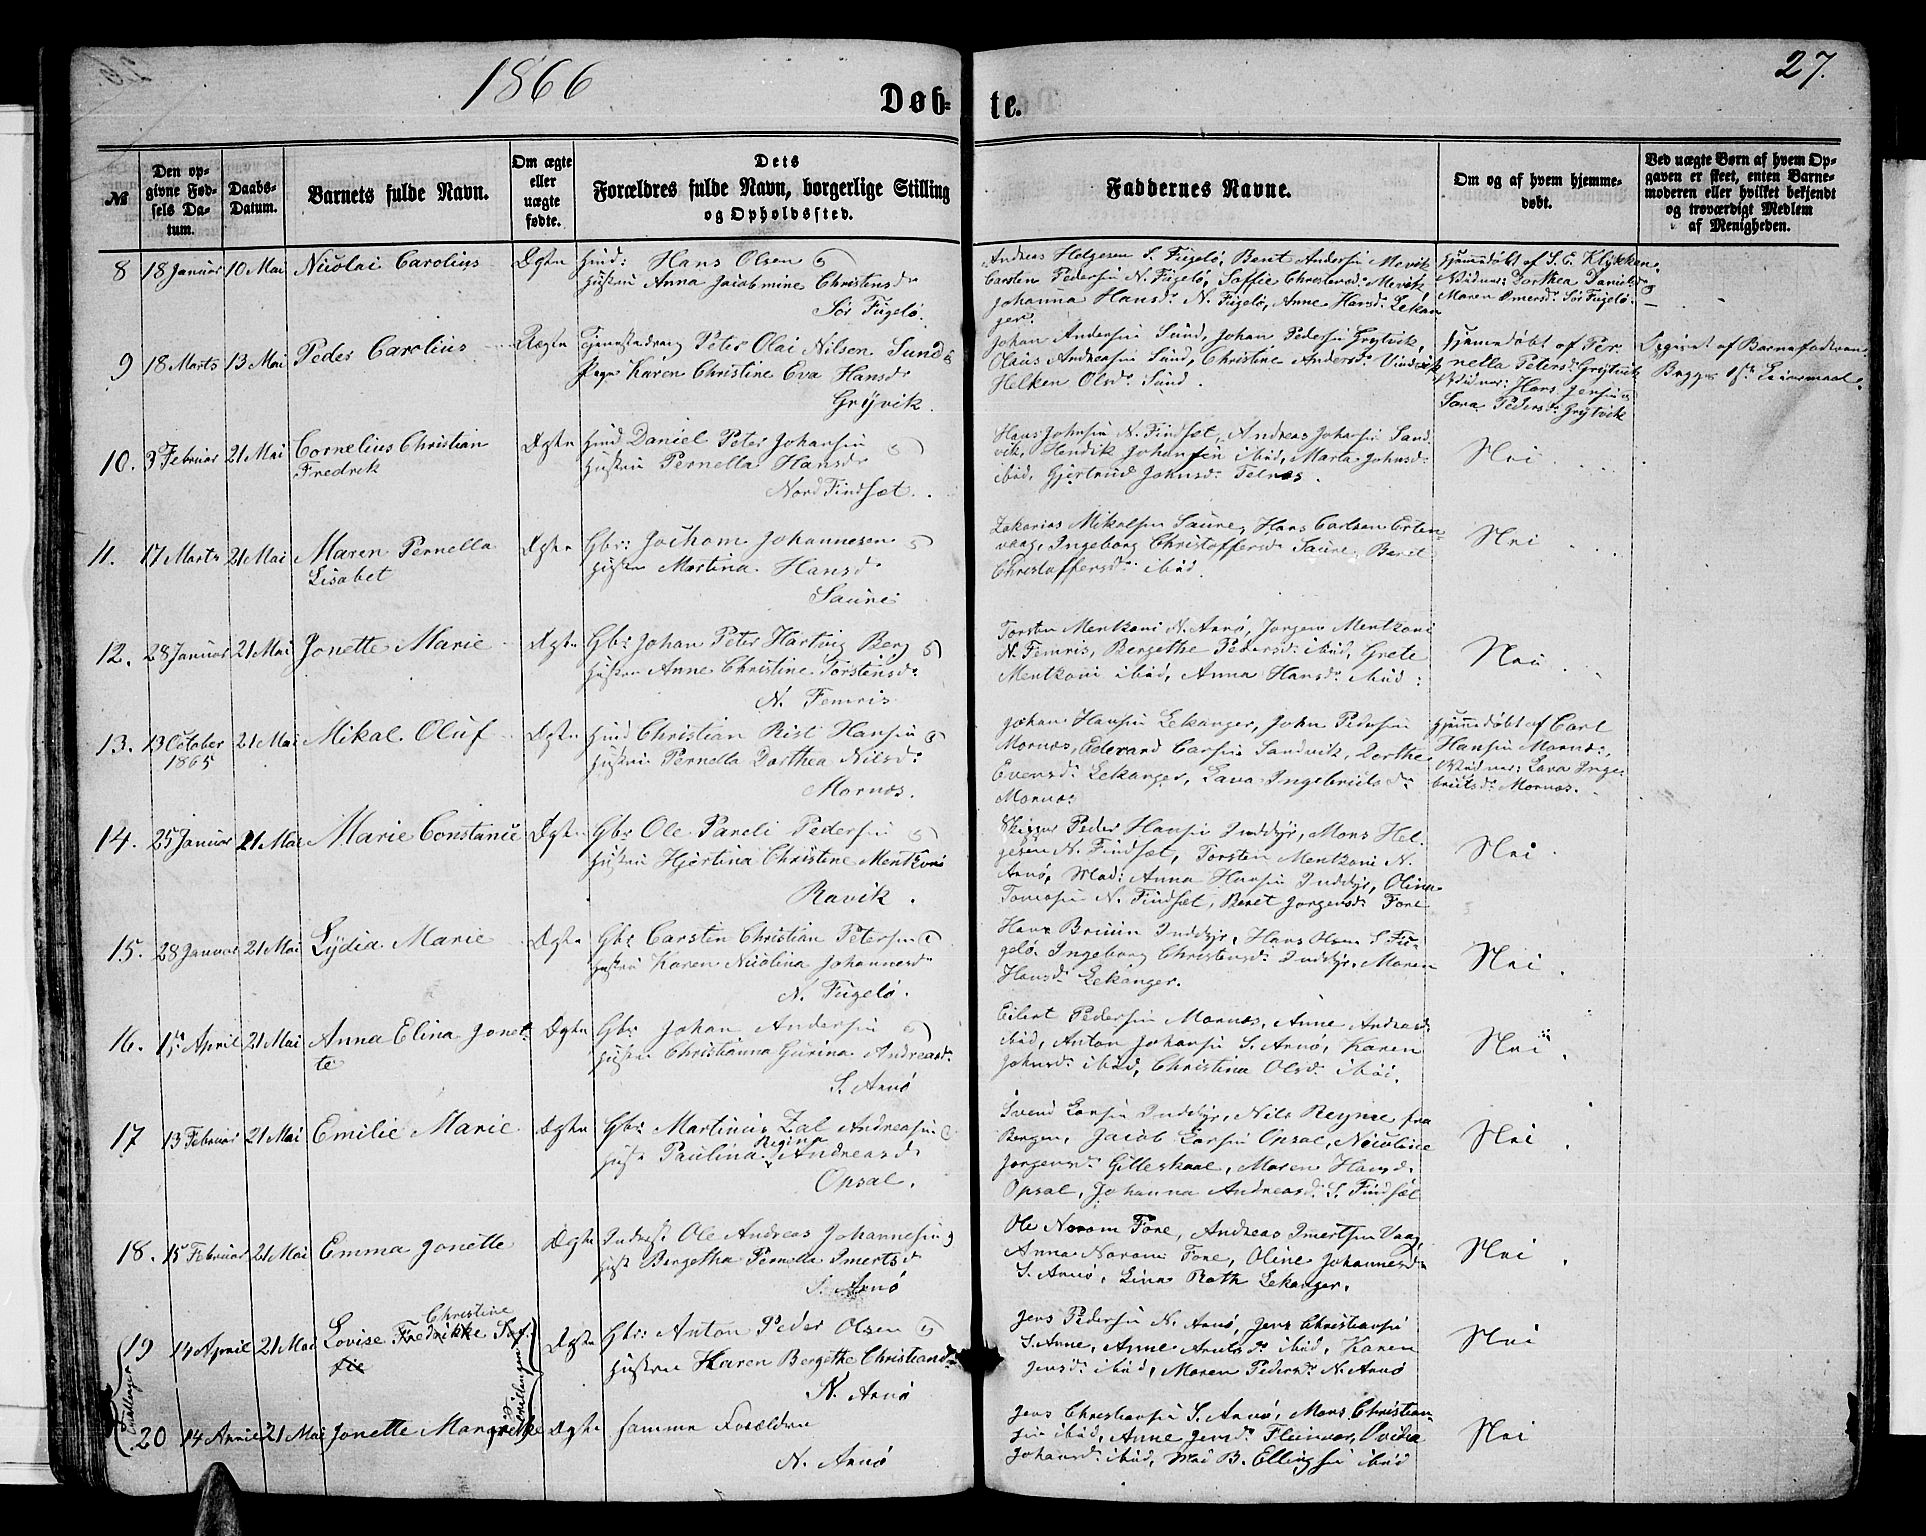 1866
27.
Døb-
te.
№
Den op-
givne Fød-
sels Da-
tum.
Daabs-
Datum.
Barnets fulde Navn.
Om ægte
eller
uægte
fødte.
Dets
Forældres fulde Navn, borgerlige Stilling
og Opholdssted.
Faddernes Navne.
Om og af hvem hjemme-
døbt.
Ved uægte Børn af hvem Op-
gaven er skeet, enten Barne-
moderen eller hvilket bekjendt
og troværdigt Medlem
af Menigheden.
8 18 Januar 10 Mai Nicolai Carolius Ægte Hans Olsen
Hustru Anna Jacobmine Christensdr
Sør Fugelø.
Andreas Helgesen S. Fugelø, Bent Andersen Mevik
Carsten Pedersen N. Fugelø, Mevik
Johanna Hansdr N. Fugelø, Anne Hansdr Lekan
ger.
Hjemmedøbt af
Vidner: Dorthea Danielsdr
Maren Sør Fugelø.
9 18 Marts 13 Mai Peder Carolius Uægte Peter Olai Nilsen Sund
Pige Karen Christine Eva Hansdr
Grytvik.
Johan Andersen Sund, Johan Pedersen Grytvik,
Olaus Andreasen Sund, Christine Andersdr
Helken Olsdr Sund.
Hjemmedøbt af Per-
nella Petersdr Grytvik
Vidner: Hans Jensen
Sara Pedersdr Grytvik
Opgivet af Barnefaderen
Begges 1ste Leiermaal.
10. 3 Februar 21 Mai Cornelius Christian Ægte Daniel Peter Johansen
Fredrik Hustru Pernella Hansdr
Nord Findsæt.
Hans Johnsen N. Findsæt, Andreas Johansen Sand
vik, Hendrik Johansen ibid, Marta Johnsdr
ibid, Gjertrud Johnsdr Telnes.
Nei
11. 17 Marts 21 Mai Maren Pernella Ægte Gbr: Jocham Johannesen
Lisabet Hustru Martina Hansdr
Saure
Zakarias Mikalsen Saure, Hans Carlsen Erten
vaag, Ingeborg Christoffersdr Saure, Beret
Christoffersdr ibid.
Nei
12. 28 Januar 21 Mai Jonette Marie Ægte Gbr: Johan Peter Hartvig Berg
Hustru Anne Christine Torstensdr
N. Femris
Torsten Mentzoni N. Arnø, Jørgen Mentzoni
N. Femris, Bergethe Pedersdr ibid, Grete
Mentzoni ibid, Anna Hansdr ibid:
Nei
13. 13 October 21 Mai Mikal Oluf Ægte Christian Rist Hansen
1865 Hustru Pernella Dorthea Nilsdr
Mornæs.
Johan Hansen Lekanger, John Pedersen
Mornæs, Edevard Sandvik, Dorthe
Evensdr Lekanger, Lava Ingebrigtsdr
Mornæs
Hjemmedøbt af Carl
Hansen Mornæs,
Vidner: Lava Inge-
brigtsdr Mornæs.
14. 25 Januar 21 Mai Marie Constance Ægte Gbr Ole Pareli Pedersen
Hustru Hjertina Christine Mentzoni
Ravik.
Skipper Peder Hansen Inddyr, Mons Hel-
gesen N. Findsæt, Torsten Mentzoni N.
Arnø, Mad: Anna Hansen Inddyr, Olina
Tomasen N. Findsæt, Beret Jørgensdr Fore
Nei
15. 28 Januar 21 Mai Lydia Marie Ægte Gbr Carsten Christian Petersen
Hustru Karen Nicolina Johannesdr
N. Fugelø.
Hans Bruun Inddyr, Hans Olsen S Fu-
gelø Ingeborg Christensdr Inddyr, Maren
Hansdr Lekanger.
Nei
16. 15 April 21 Mai Anna Elina Jonet- Ægte Gbr Johan Andersen
te Hustru Christianna Gurina Andreasdr
S. Arnø
Eilert Pedersen Mornæs, Anne Andreasdr
ibid, Anton Johansen S. Arnø, Karen
Johnsdr ibid, Christina Olsdr ibid.
Nei
17 13 Februar 21 Mai Emilie Marie Ægte Gbr: Martinus Zal Andreasen
Regina
Hustru Paulina Andreasdr
Opsal.
Svend Larsen Inddyr, Nils Reyme fra
Bergen, Jacob Larsen Opsal, Nicoline
Jørgensdr Gilleskaal, Maren Hansdr
Opsal, Johanna Andreasdr S. Findsæt
Nei
18. 15 Februar 21 Mai Emma Jonette Ægte Inderst Ole Andreas Johannesen
Hustr Bergetha Pernella Imertsdr
S. Arnø
Ole Norum Fore, Andreas Imertsen Vaag,
Anna Norum Fore, Oline Johannesdr
S. Arnø, Lina Rath Lekanger.
Nei
Christine
19 14 April 21 Mai Lovise Fredrikke Sof- Ægte Gbr: Anton Peder Olsen
fie Hustru Karen Bergethe Christiansdr
N. Arnø
Jens Pedersen N. Arnø, Jens Christiansen
S. Arnø, Anne ibid, Karen
Jensdr ibid, Maren Pedersdr N. Arnø
Nei
Tvillinger
Tvillinger
20 14 April 21 Mai Jonette Margrethe Ægte samme Forældre
N. Arnø
Jens Christiansen S. Arnø, Mons Christian-
sen ibid, Anne Jensdr Fleinvær, Ovidia
Johansdr ibid, Mad B. Ellingsen ibid
Nei